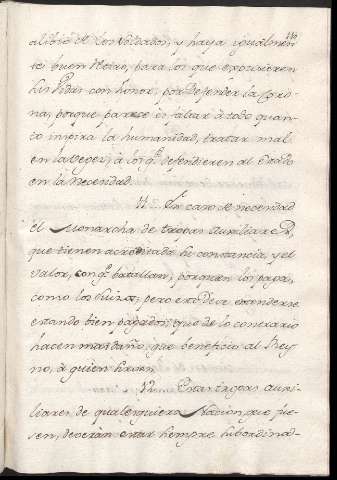 alibio de los Soldados, y haya igualmen-
te buen Retiro, para los que expusieren
sus Vidas con honor, por defender la Coro-
na; porque parece es faltar à todo quan-
to inspira la humanidad, tratar mal
en la Vegez, à los q.e defendieren al Estado
en la Necesidad.
11 En caso de necesidad
el Monarcha de tropas Auxiliares,
que tienen acreditada su constancia, y el
valor, con q.e batallan, por quien los paga,
como los Suizos; pero esto deve entenderse
estando bien pagados, que de lo contrario
hacen mas daño, que beneficio al Rey-
no, à quien sirven.
12 Estas tropas auxi-
liares, de qualesquiera Nacion, que fue-
sen, deveràn estar siempre subordinad-